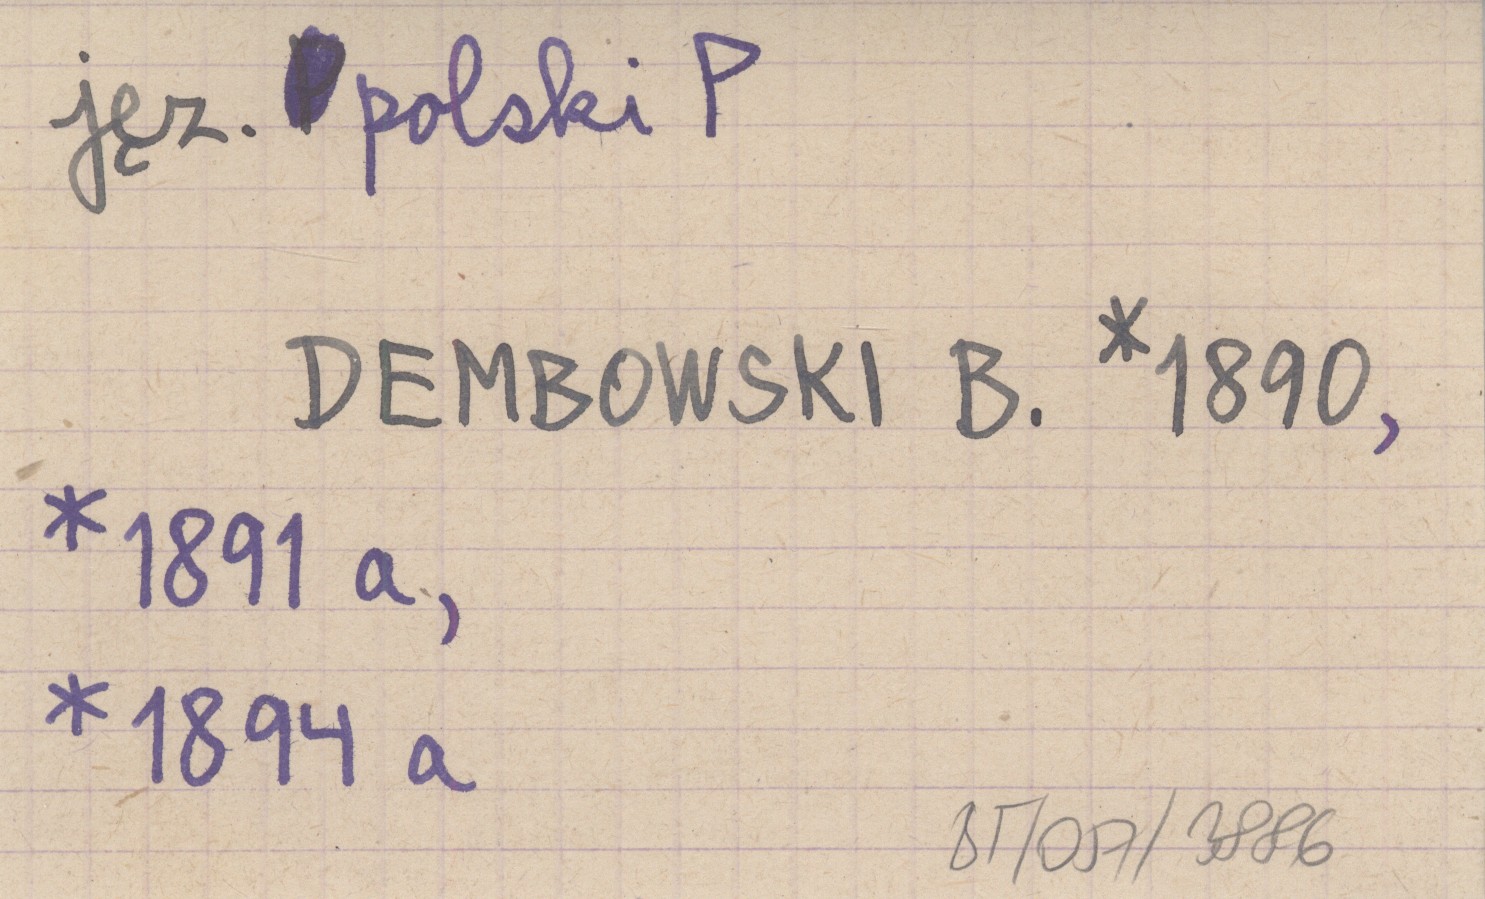 jęz. polski P
DEMBOWSKI B. *1890,
*1891 a,
*1894 a
BT/057/3886